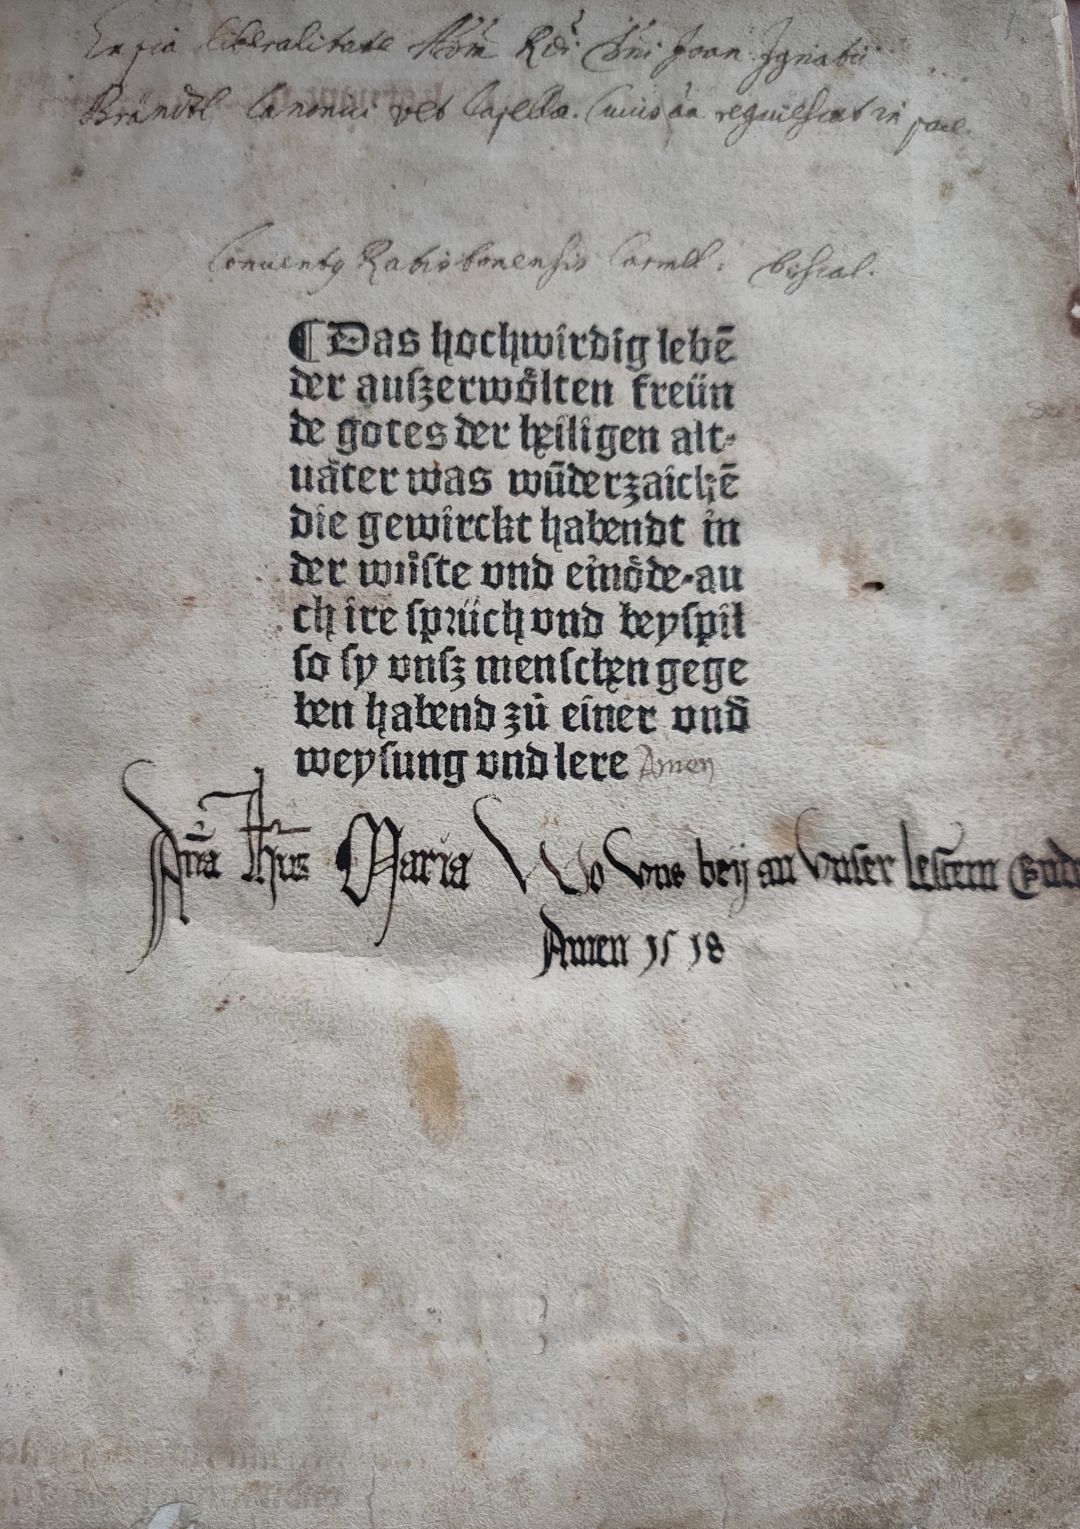 Ex pia liberalitate Adm Rdi Dni Joan Ignatii
Brändtl Canonici vet Capellae. Cuius aa requiescat in pace.
Conventq Ratisbonensis Carmel: discal.
¶ Das hochwirdig lebē
der auſzerwoͤlten freün
de gotes der heiligen alt⸗
uaͤter was wūderzaichē
die gewirckt habendt in
der wuͤſte vnd einoͤde·au
ch ire ſpꝛüch vnd beyſpil
ſo ſy vnſz menſchen gege
ben habend zuͦ einer vnd̄
weyſung vnd lere Amen
An̄a Ihūs Maria Wo vns beÿ an vnſer leſtem Ende
Amen 1518